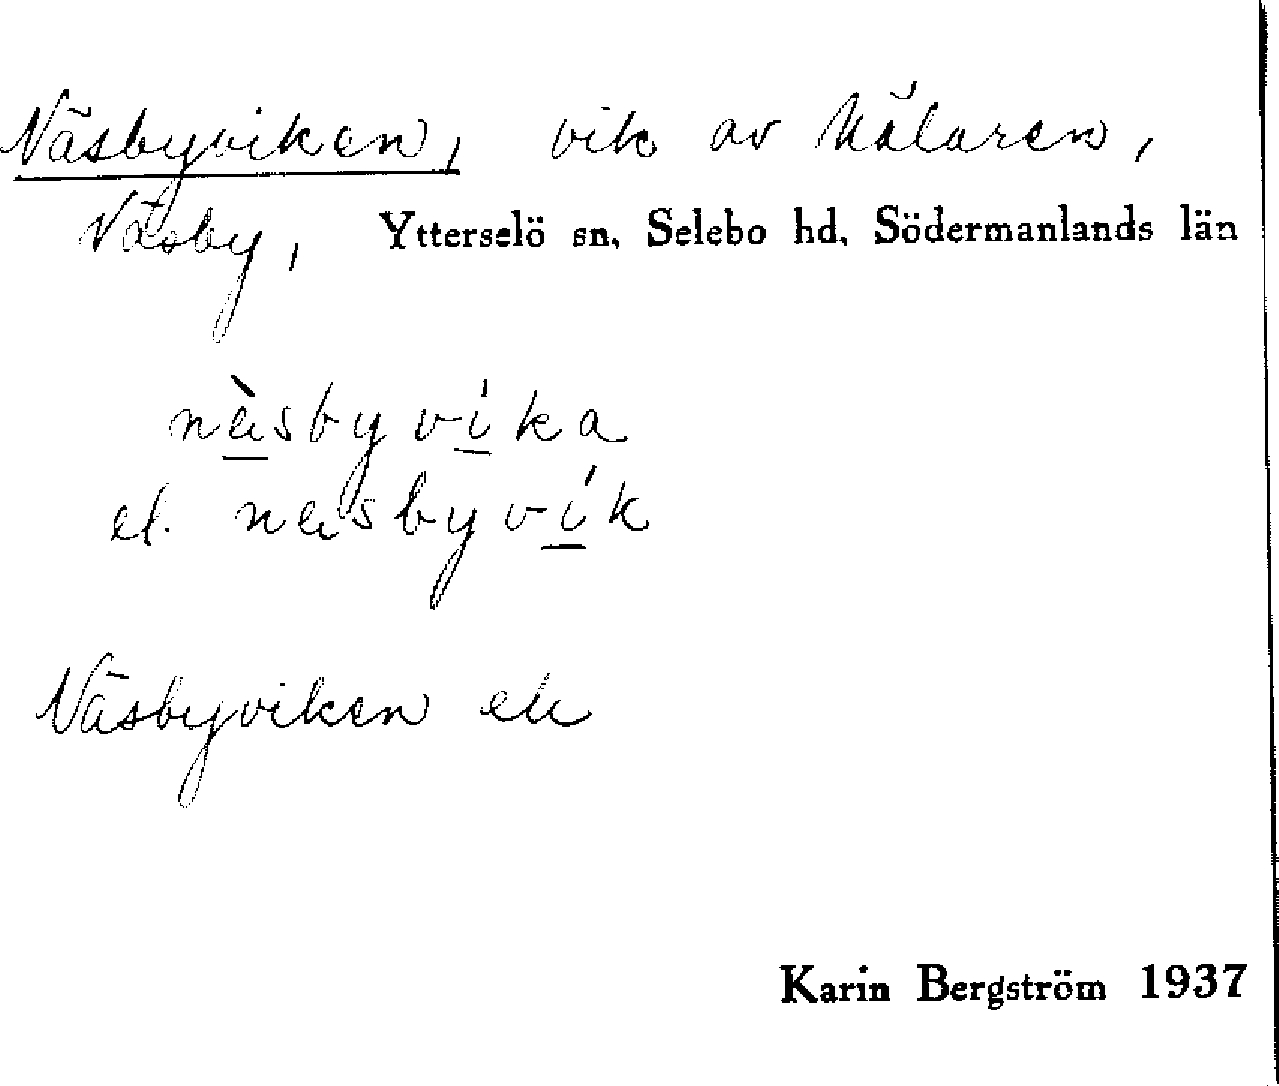 Näsbyviken, vik av Mälaren,
Näsby, Ytterselö sn, Selebo hd, Södermanlands län
næ̀sbyvíka
el. næsbyvík
Näsbyviken ek
Karin Bergström 1937